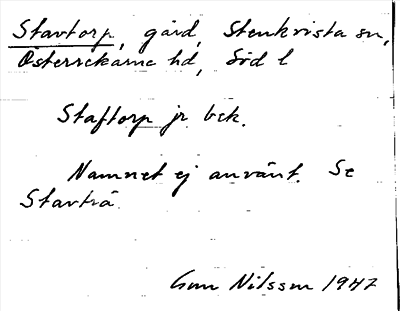 Stavtorp, gård, Stenkvista sn,
Österrekarne hd, Söd l
Staftorp jr bck.
Namnet ej använt. Se
Stavträ.
Gun Nilsson 1947